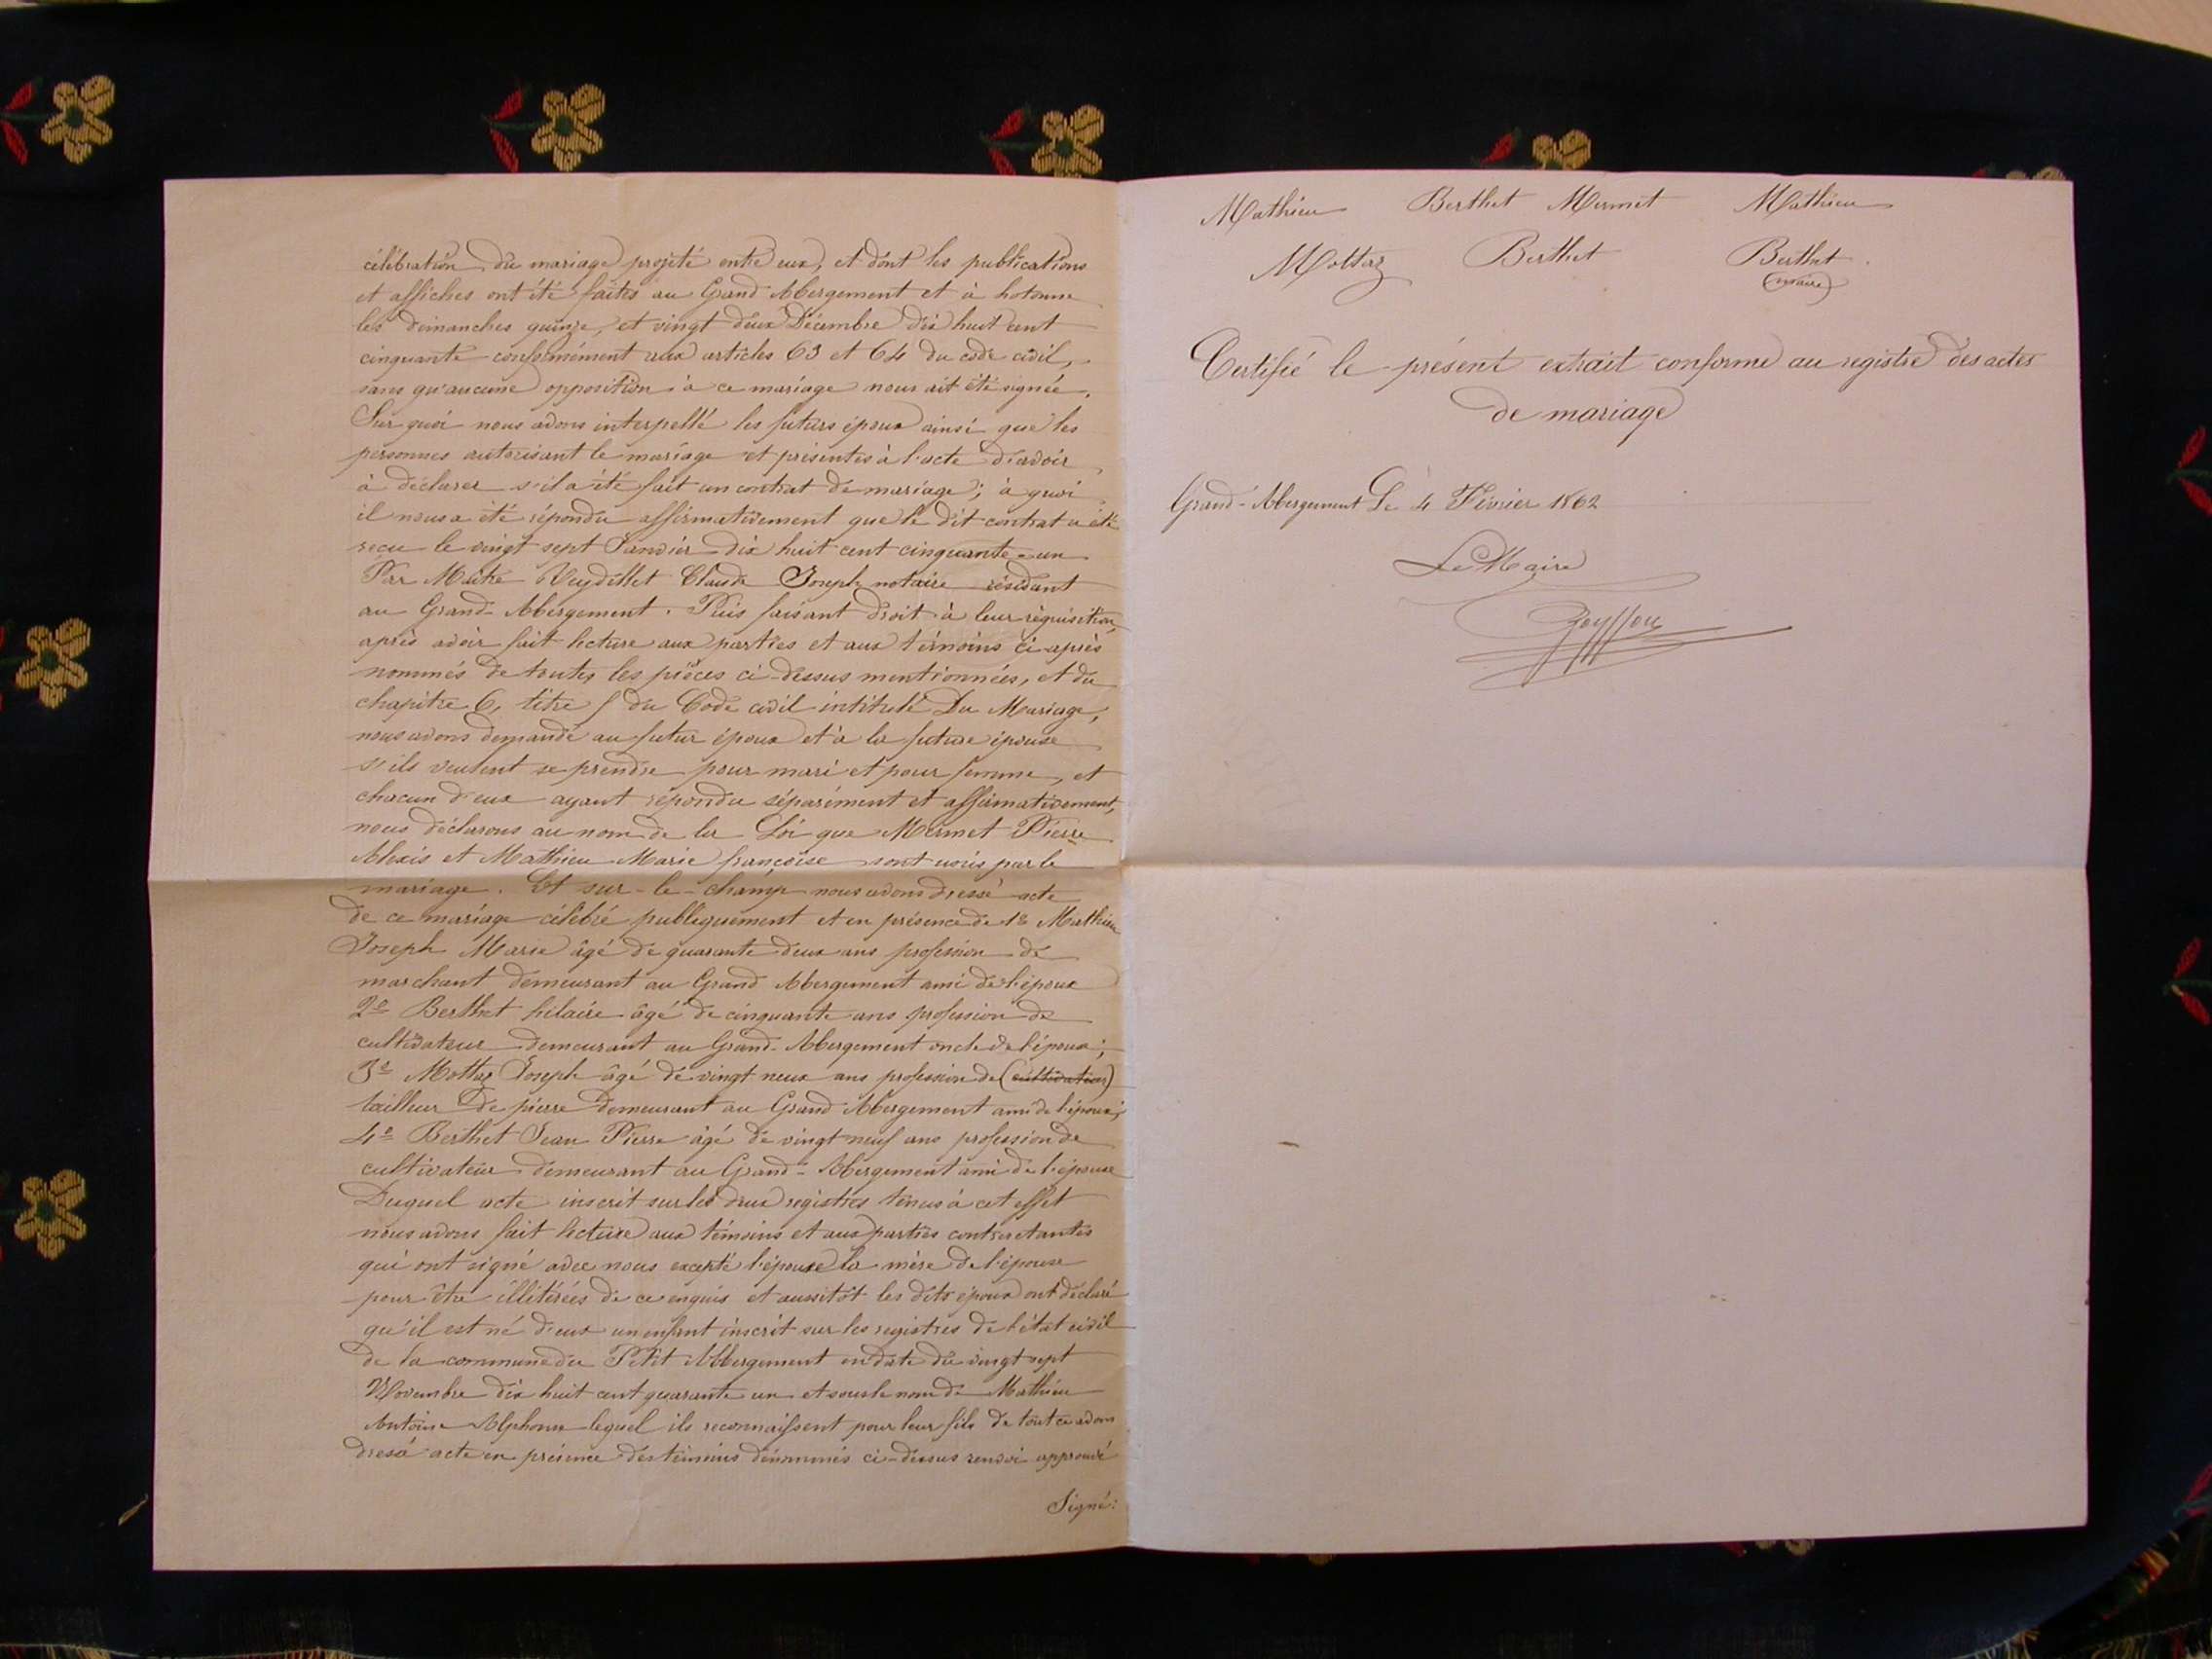 célébration du mariage projeté entre eux, et dont les publications
et affiches ont été faites au Grand Abergement et à hotonne
les dimanches quinze, et vingt deux Décembre dix huit cent
cinquante conformément aux articles 63 et 64 du code civil,
sans qu'aucune opposition à ce mariage nous ait été signée.
Sur quoi nous avons interpellé les futurs époux ainsi que les
personnes autorisant le mariage et présentes à l'acte d'avoir
à déclarer s'il a été fait un contrat de mariage ; à quoi
il nous a été répondu affirmativement que le dit contrat a été
recu le vingt sept Janvier dix huit cent cinquante-un
Par Maitre Veydillet Claude Joseph notaire résidant
au Grand-Abergement. Puis faisant droit à leur réquisition,
après avoir fait lecture aux parties et aux témoins ci-après
nommés de toutes les pièces ci-dessus mentionnées, et du
chapitre 6, titre 5 du Code civil intitulé Du Mariage,
nous avons demandé au futur époux et à la future épouse
s'ils veulent se prendre pour mari et pour femme, et
chacun d'eux ayant répondu séparément et affirmativement,
nous déclarons au nom de la Loi que Mermet Pierre
Alexis et Mathieu Marie françoise sont unis par le
mariage. Et sur-le-champ nous avons dressé acte
de ce mariage célébré publiquement et en présence de 1º Mathieu
Joseph Marie âgé de quarante deux ans profession de
marchant demeurant au Grand Abergement ami de l'époux
2º Berthet hilaire âgé de cinquante ans profession de
cultivateur demeurant au Grand-Abergement oncle de l'époux ;
3º Mottaz Joseph âgé de vingt neux ans profession de (cultivateur)
tailleur de pierre demeurant au Grand Abergement ami de l'époux ;
4º Berthet Jean Pierre âgé de vingt neuf ans profession de
cultivateur demeurant au Grand-Abergement ami de l'épouse
Duquel acte inscrit sur les deux registres tenus à cet effet
nous avons fait lecture aux témoins et aux parties contractantes
qui ont signé avec nous excepté l'épouse la mère de l'épouse
pour être illitérées de ce enquis et aussitôt les dits époux ont déclaré
qu'il est né d'eux un enfant inscrit sur les registres de l'état civil
de la commune du Petit Abbergement en date du vingt sept
Novembre dix huit cent quarante un et sous le nom de Mathieu
Antoine Alphonse lequel ils reconnaissent pour leur fils de tout ce avons
dressé acte en présence des témoins dénommés ci-dessus renvoi approuvé
Signé :
Mathieu Berthet Mermet Mathieu
Mottaz Berthet Berthet
(maire)
Certifié le présent extrait conforme au registre des actes
de mariage
Grand-Abergement Le 4 Février 1862
Le Maire